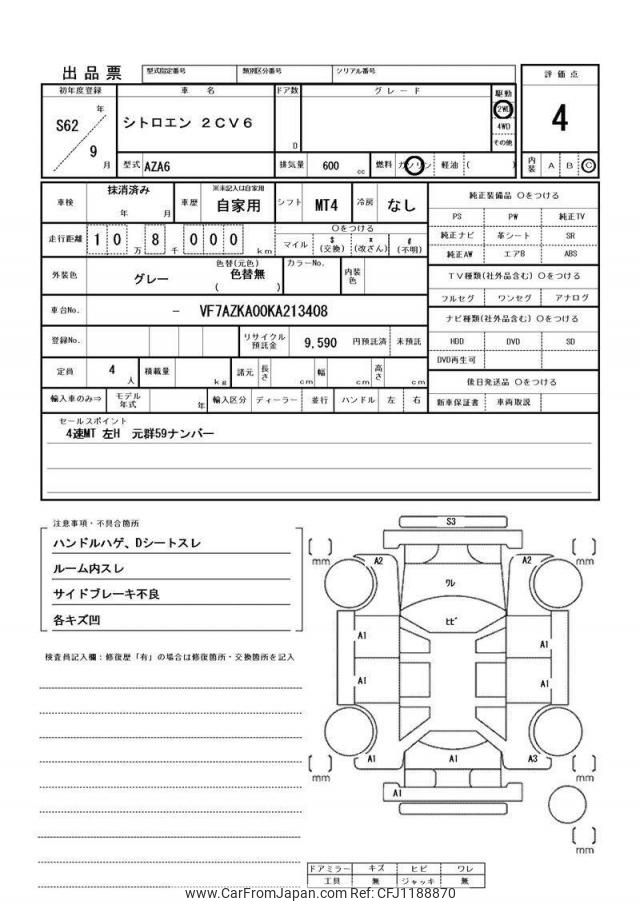 出品票 型式指定番号 類別区分番号 シリアル番号 評価点
初年度登録 車名 ドア数 グレード 駆動
S62 年 シトロエン 2CV6 2WD 4
9 月 D 4WD
その他
型式 AZA6 排気量 600 cc 燃料 ガソリン 軽油 ( ) 内装 A B C
車検 抹消済み 年 月 車歴 ※未記入は自家用 自家用 シフト MT4 冷房 なし 純正装備品 ○をつける
PS PW 純正TV
走行距離 10 万 8 千 000 km ○をつける マイル $(交換) *(改ざん) #(不明) 純正ナビ 革シート SR
純正AW エアB ABS
外装色 グレー 色替(元色) 色替無 ( ) カラーNo. 内装色 TV種類(社外品含む) ○をつける
フルセグ ワンセグ アナログ
車台No. - VF7AZKA00KA213408 ナビ種類(社外品含む) ○をつける
登録No. リサイクル預託金 9,590 円預託済 未預託 HDD DVD SD
DVD再生可
定員 4 人 積載量 kg 諸元 長さ cm 幅 cm 高さ cm 後日発送品 ○をつける
輸入車のみ⇒ モデル年式 年 輸入区分 ディーラー 並行 ハンドル 左 右 新車保証書 車両取説
セールスポイント
4速MT 左H 元群59ナンバー
注意事項・不具合箇所
ハンドルハゲ、Dシートスレ
ルーム内スレ
サイドブレーキ不良
各キズ凹
検査員記入欄:修復歴「有」の場合は修復箇所・交換箇所を記入
S3
[ ] mm [ ] mm
A2 A2
ワレ
ヒビ
A1 A1
A1 A1
A1 A1 A3
[ ] mm [ ] mm
A1
[ ] mm
ドアミラー キズ ヒビ ワレ
工具 無 ジャッキ 無
www.CarFromJapan.com Ref: CFJ1188870